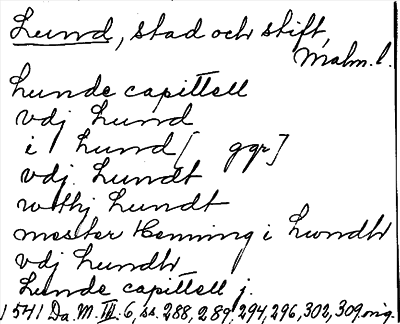 Lund, stad och stift,
Malm. l.
Lunde capittell
vdj Lund
i Lund [ ggr]
vdj. Lundt
wthj Lundt
mester Henning i Lwndh
vdj Lundh
Lunde capittell j.
1541 Da. M. III. 6, ss. 288, 289, 294, 296, 302, 309 orig.